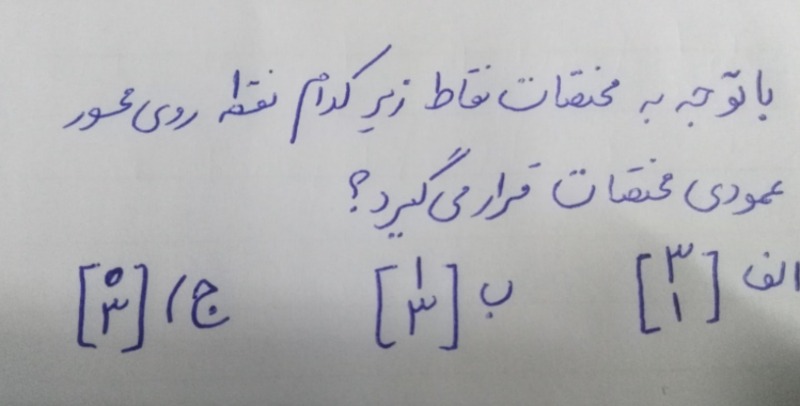 با توجه به مختصات نقاط زیر کدام نقطه روی محور
عمودی مختصات قرار می گیرد؟
الف [۳ ۱] ب [۱ ۳] ج) [۰ ۳]